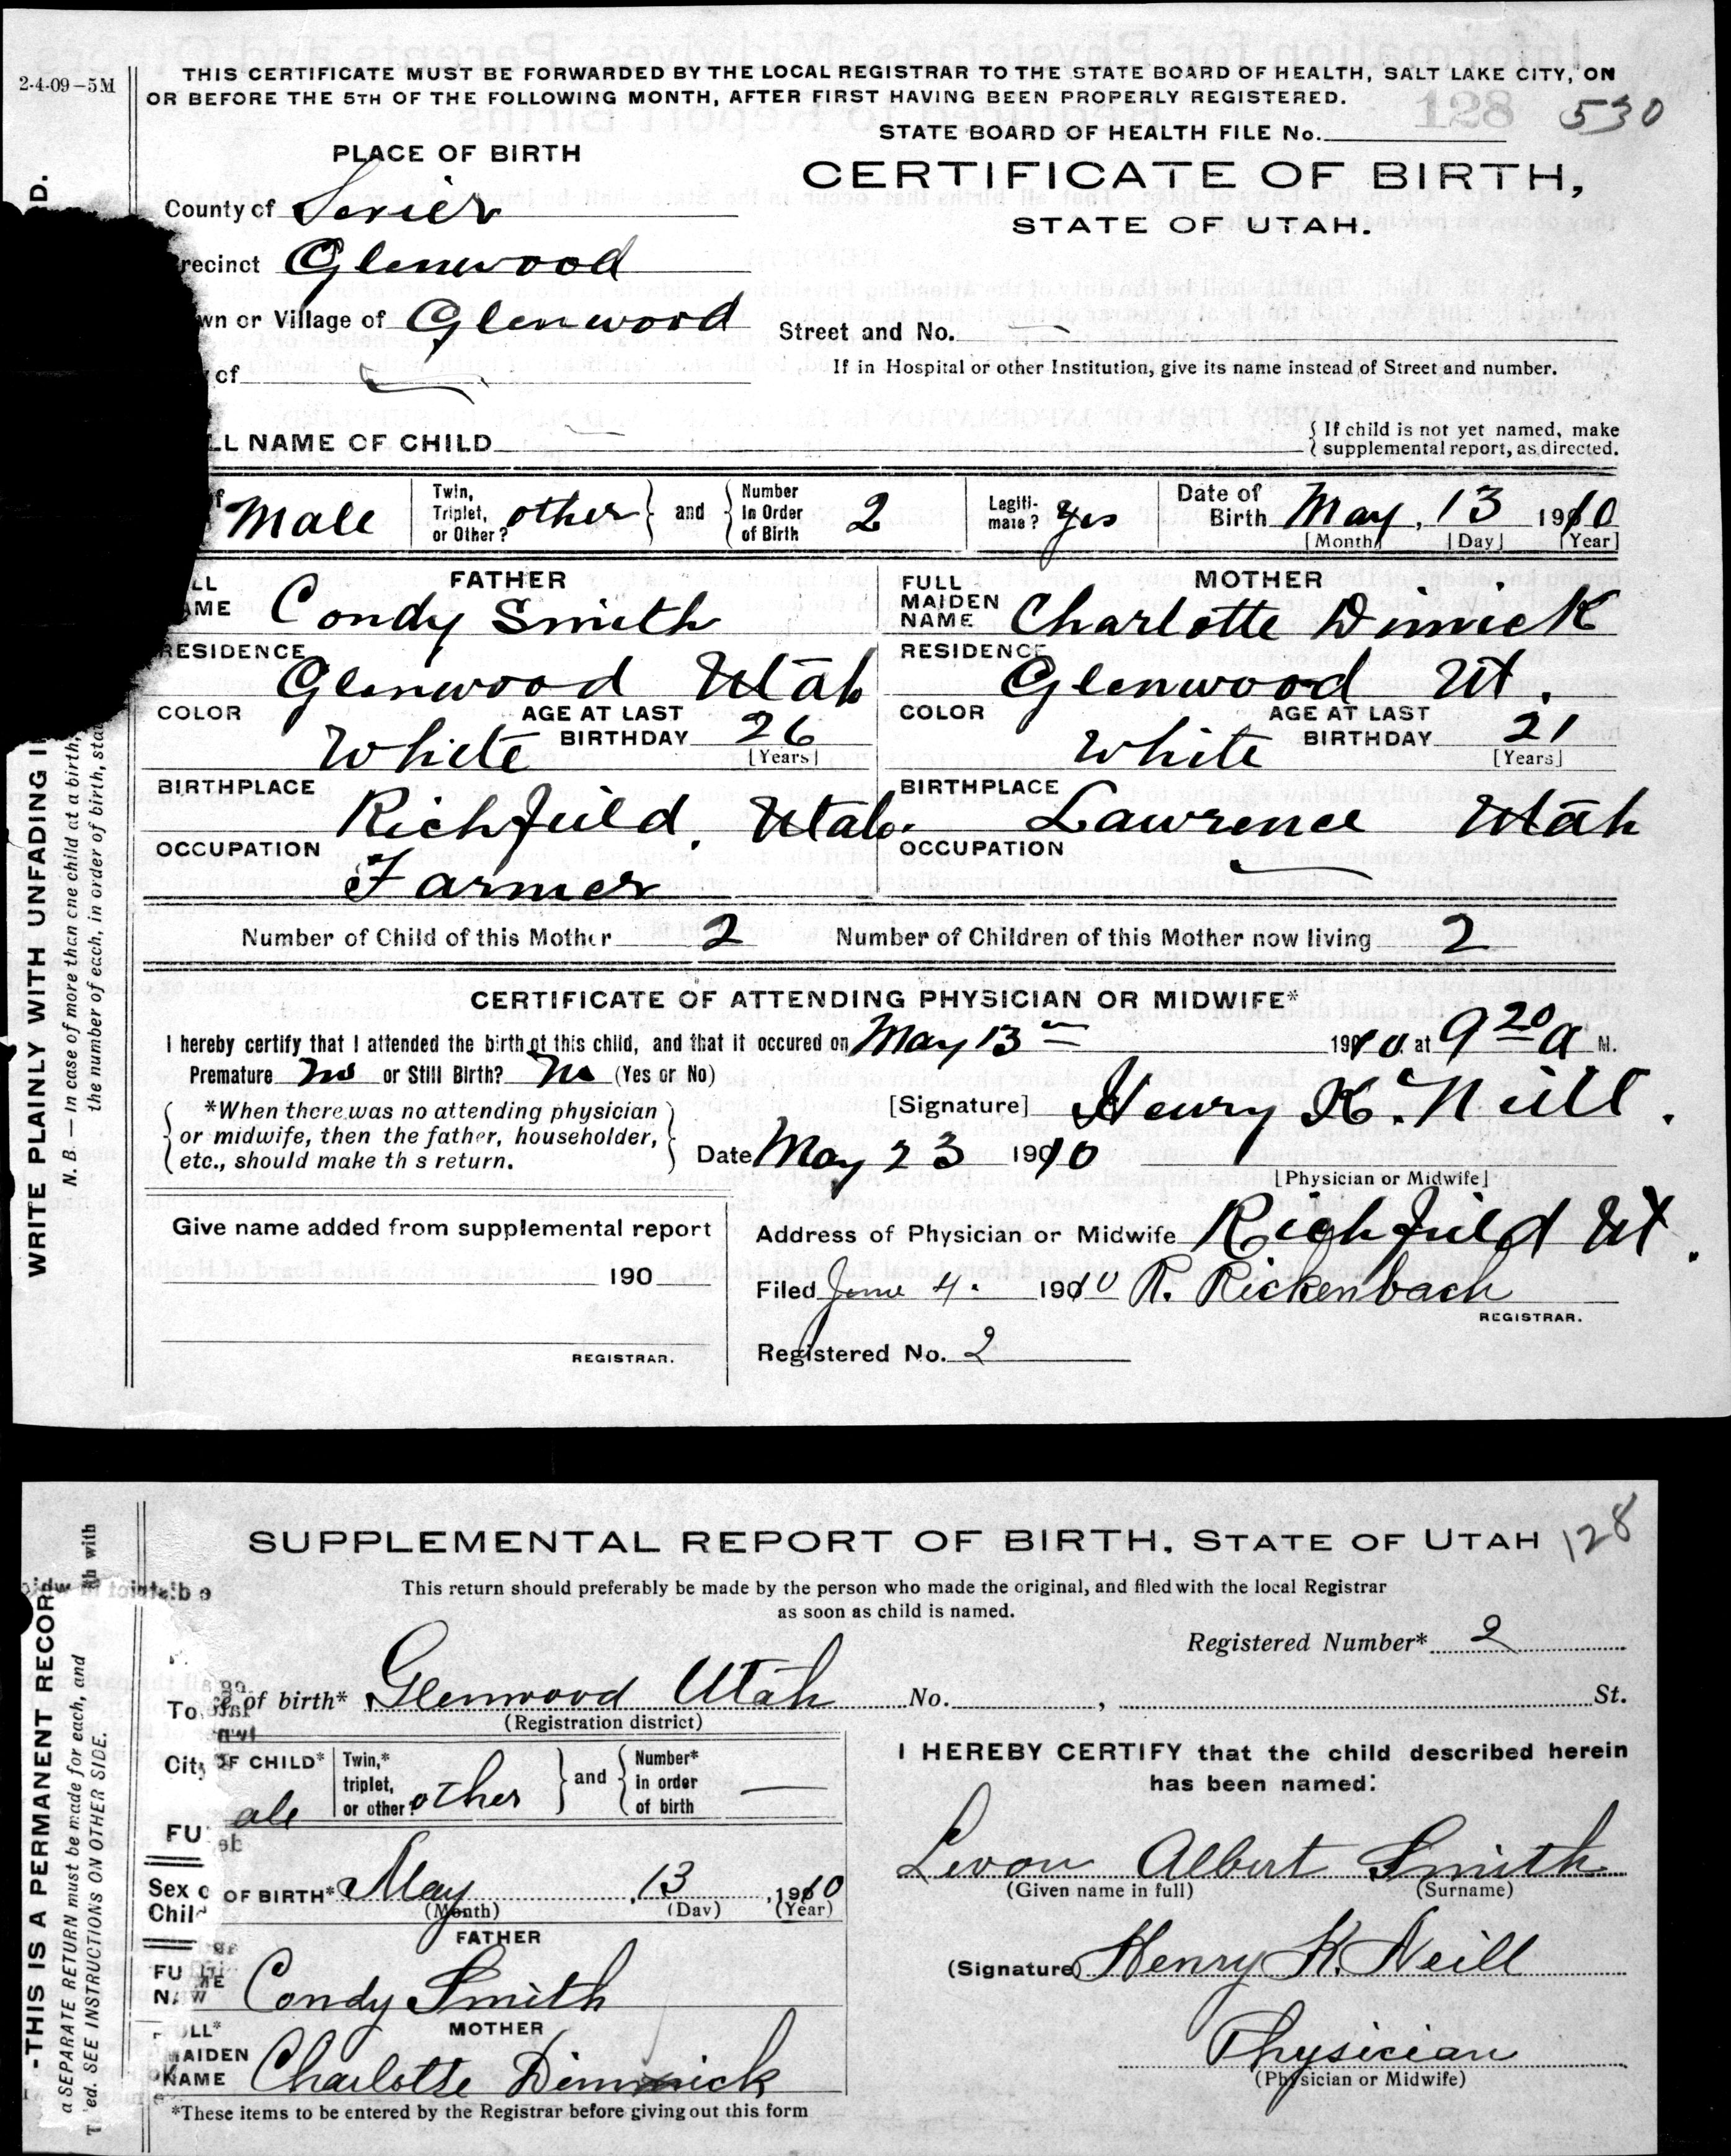 2-4-09-5M
THIS CERTIFICATE MUST BE FORWARDED BY THE LOCAL REGISTRAR TO THE STATE BOARD OF HEALTH, SALT LAKE CITY, ON
OR BEFORE THE 5TH OF THE FOLLOWING MONTH, AFTER FIRST HAVING BEEN PROPERLY REGISTERED.
128 530
STATE BOARD OF HEALTH FILE No.
PLACE OF BIRTH
CERTIFICATE OF BIRTH,
STATE OF UTAH.
County of Sevier
recinct Glenwood
wn or Village of Glenwood
Street and No. —
of —
If in Hospital or other Institution, give its name instead of Street and number.
LL NAME OF CHILD —
{ If child is not yet named, make
supplemental report, as directed.
Male
Twin, Triplet, or Other? other } and { Number In Order of Birth 2
Legiti-mate? Yes
Date of Birth May, 13 1910
[Month] [Day] [Year]
FATHER
LL AME Condy Smith
RESIDENCE Glenwood Utah
COLOR White AGE AT LAST BIRTHDAY 26 [Years]
BIRTHPLACE Richfield, Utah.
OCCUPATION Farmer
MOTHER
FULL MAIDEN NAME Charlotte Dimick
RESIDENCE Glenwood Ut.
COLOR White AGE AT LAST BIRTHDAY 21 [Years]
BIRTHPLACE Lawrence Utah
OCCUPATION —
Number of Child of this Mother 2 Number of Children of this Mother now living 2
CERTIFICATE OF ATTENDING PHYSICIAN OR MIDWIFE*
I hereby certify that I attended the birth of this child, and that it occured on May 13 1910. at 9 20 a M.
Premature No or Still Birth? No (Yes or No)
{ *When there was no attending physician
or midwife, then the father, householder,
etc., should make th s return. }
[Signature] Henry K. Neill.
Date May 23 1910
[Physician or Midwife]
Give name added from supplemental report
190
REGISTRAR.
Address of Physician or Midwife Richfield Ut.
Filed June 4. 1910 R. Rickenbach
REGISTRAR.
Registered No. 2
D.
WRITE PLAINLY WITH UNFADING I
N. B. — In case of more than one child at a birth,
the number of each, in order of birth, sta
SUPPLEMENTAL REPORT OF BIRTH, STATE OF UTAH 128
This return should preferably be made by the person who made the original, and filed with the local Registrar
as soon as child is named.
Registered Number* 2
of birth* Glenwood Utah No. , St.
(Registration district)
OF CHILD* ale
Twin,* triplet, or other? other } and { Number* in order of birth —
OF BIRTH* May, 13, 1910
(Month) (Day) (Year)
FATHER
Condy Smith
MOTHER
MAIDEN NAME Charlotte Dimmick
*These items to be entered by the Registrar before giving out this form
I HEREBY CERTIFY that the child described herein
has been named:
Levon Albert Smith
(Given name in full) (Surname)
(Signature) Henry K. Neill
Physician
(Physician or Midwife)
To
City
FU
Sex o
Chil
FU
N
-THIS IS A PERMANENT RECOR
a SEPARATE RETURN must be made for each, and
ed. SEE INSTRUCTIONS ON OTHER SIDE.